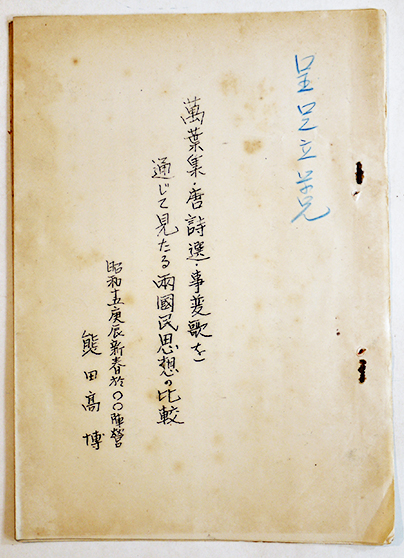 呈足立学兄
萬葉集・唐詩選・事変歌を
通じて見たる両國民思想の比較
昭和十五庚辰新春於〇〇陣営
熊田高博